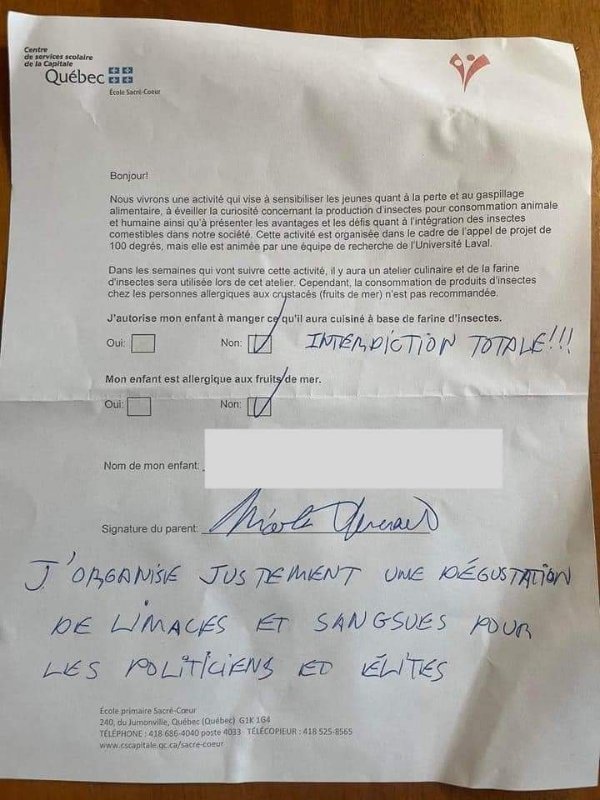 Centre
de services scolaire
de la Capitale
Québec
École Sacré-Coeur
Bonjour!
Nous vivrons une activité qui vise à sensibiliser les jeunes quant à la perte et au gaspillage
alimentaire, à éveiller la curiosité concernant la production d'insectes pour consommation animale
et humaine ainsi qu'à présenter les avantages et les défis quant à l'intégration des insectes
comestibles dans notre société. Cette activité est organisée dans le cadre de l'appel de projet de
100 degrés, mais elle est animée par une équipe de recherche de l'Université Laval.
Dans les semaines qui vont suivre cette activité, il y aura un atelier culinaire et de la farine
d'insectes sera utilisée lors de cet atelier. Cependant, la consommation de produits d'insectes
chez les personnes allergiques aux crustacés (fruits de mer) n'est pas recommandée.
J'autorise mon enfant à manger ce qu'il aura cuisiné à base de farine d'insectes.
Oui: Non: INTERDICTION TOTALE!!!
Mon enfant est allergique aux fruits de mer.
Oui: Non:
Nom de mon enfant:
Signature du parent:
J'ORGANISE JUSTEMENT UNE DÉGUSTATION
DE LIMACES ET SANGSUES POUR
LES POLITICIENS ET ÉLITES
École primaire Sacré-Cœur
240, du Jumonville, Québec (Québec) G1K 1G4
TÉLÉPHONE : 418 686-4040 poste 4033 TÉLÉCOPIEUR : 418 525-8565
www.cscapitale.qc.ca/sacre-coeur